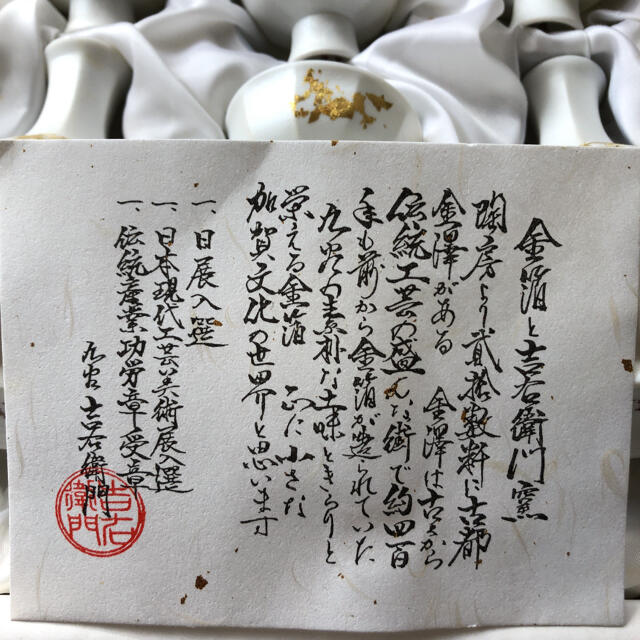 金箔と吉右衛門窯
陶房より貳拾数粁に古都
金澤がある　金澤は古くから
伝統工芸の盛んな街で約四百
年も前から金箔が造られていた
九谷の素朴な土味ときらりと
栄える金箔　正に小さな
加賀文化の世界と思います
一、日展入選
一、日本現代工芸美術展入選
一、伝統産業功労章受章
九谷 吉右衛門
吉右衛門